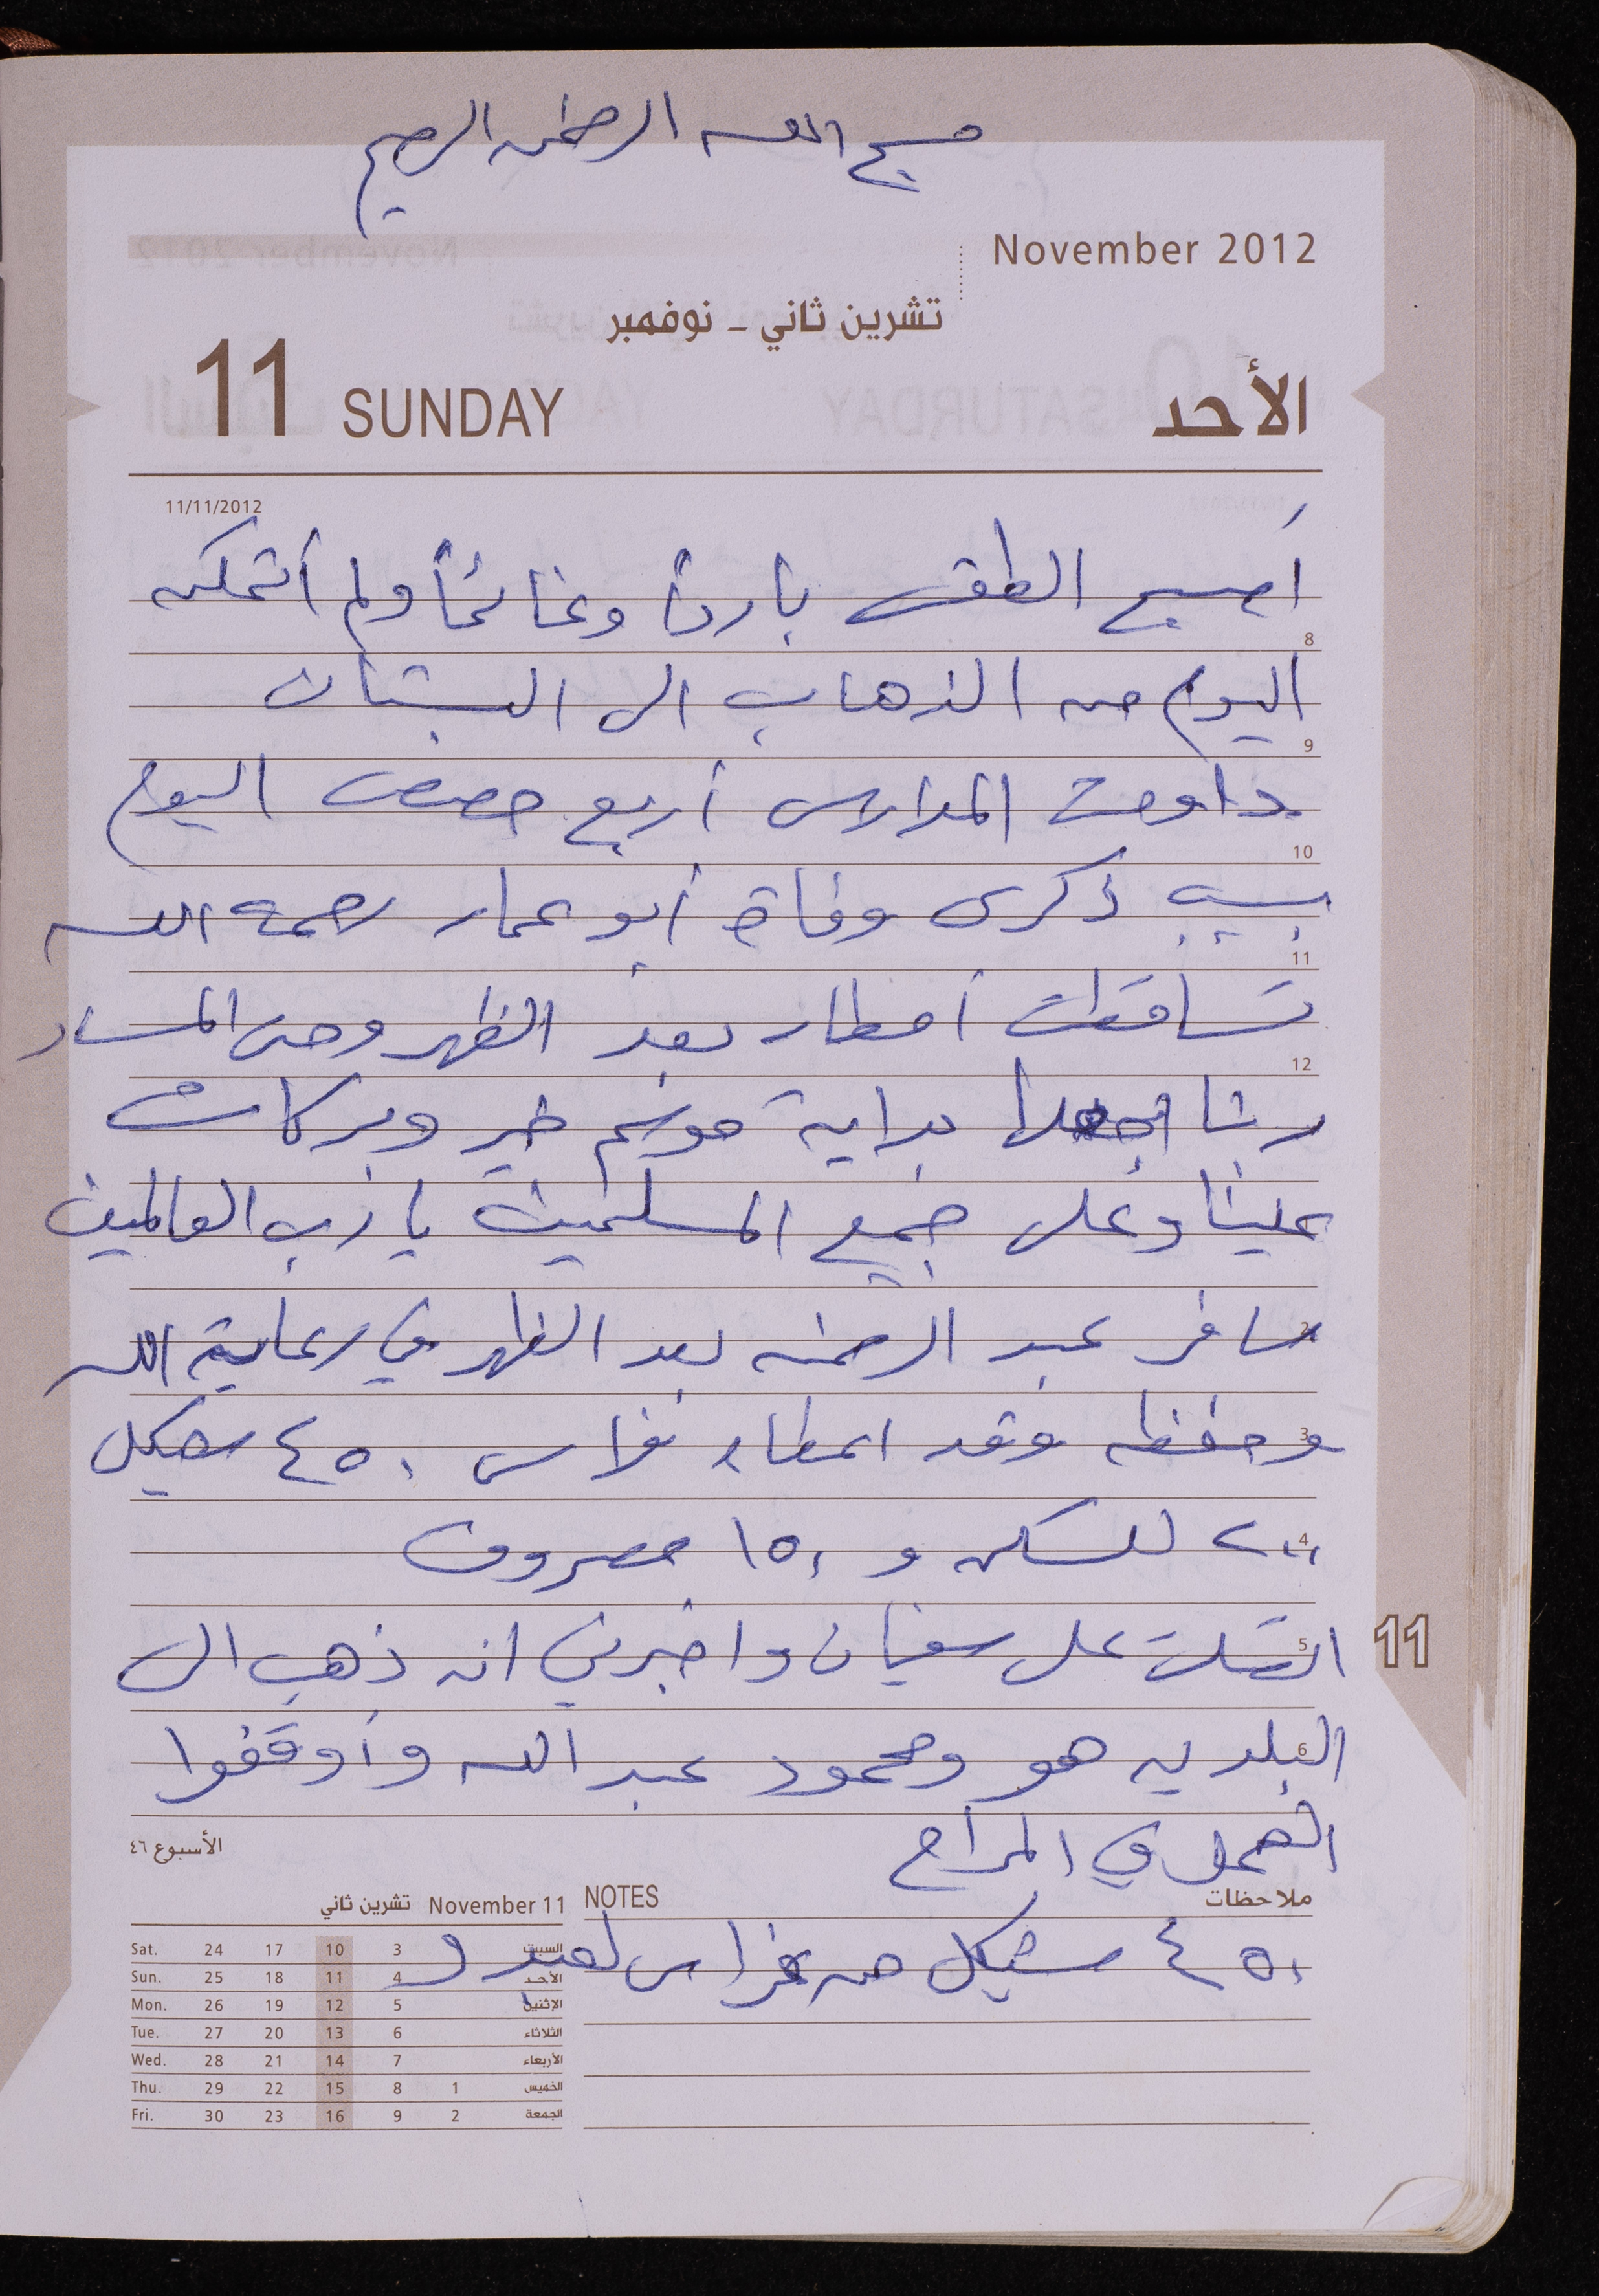 بسم الله الرحمن الرحيم
November 2012
تشرين ثاني - نوفمبر
11 SUNDAY الأحد
11/11/2012
أصبح الطقس بارداً وغائماً ولم أتمكن
8
اليوم من الذهاب الى البستان
9
داومت المدارس أربع حصص اليوم
10
بسبب ذكرى وفاة أبو عمار رحمه الله
11
تساقطت أمطار بعد الظهر وحتى المساء
12
ربنا اجعلها بداية موسم خير وبركات
علينا وعلى جميع المسلمين يا رب العالمين
سافر عبد الرحمن بعد الظهر في رعاية الله
2
وحفظه وقد اعطاه فراس ٤٥٠ شيكل
3
٢٠٠ للسكن و ١٥٠ مصروف
4
اتصلت على سفيان واخبرني انه ذهب الى
5
11
البلديه هو ومحمود عبد الله وأوقفوا
6
العمل في المراح
الأسبوع ٤٦
NOTES ملاحظات
٤٥٠ شيكل من فراس لعبد
November 11 تشرين ثاني
Sat. 24 17 10 3 السبت
Sun. 25 18 11 4 الأحد
Mon. 26 19 12 5 الإثنين
Tue. 27 20 13 6 الثلاثاء
Wed. 28 21 14 7 الأربعاء
Thu. 29 22 15 8 1 الخميس
Fri. 30 23 16 9 2 الجمعة